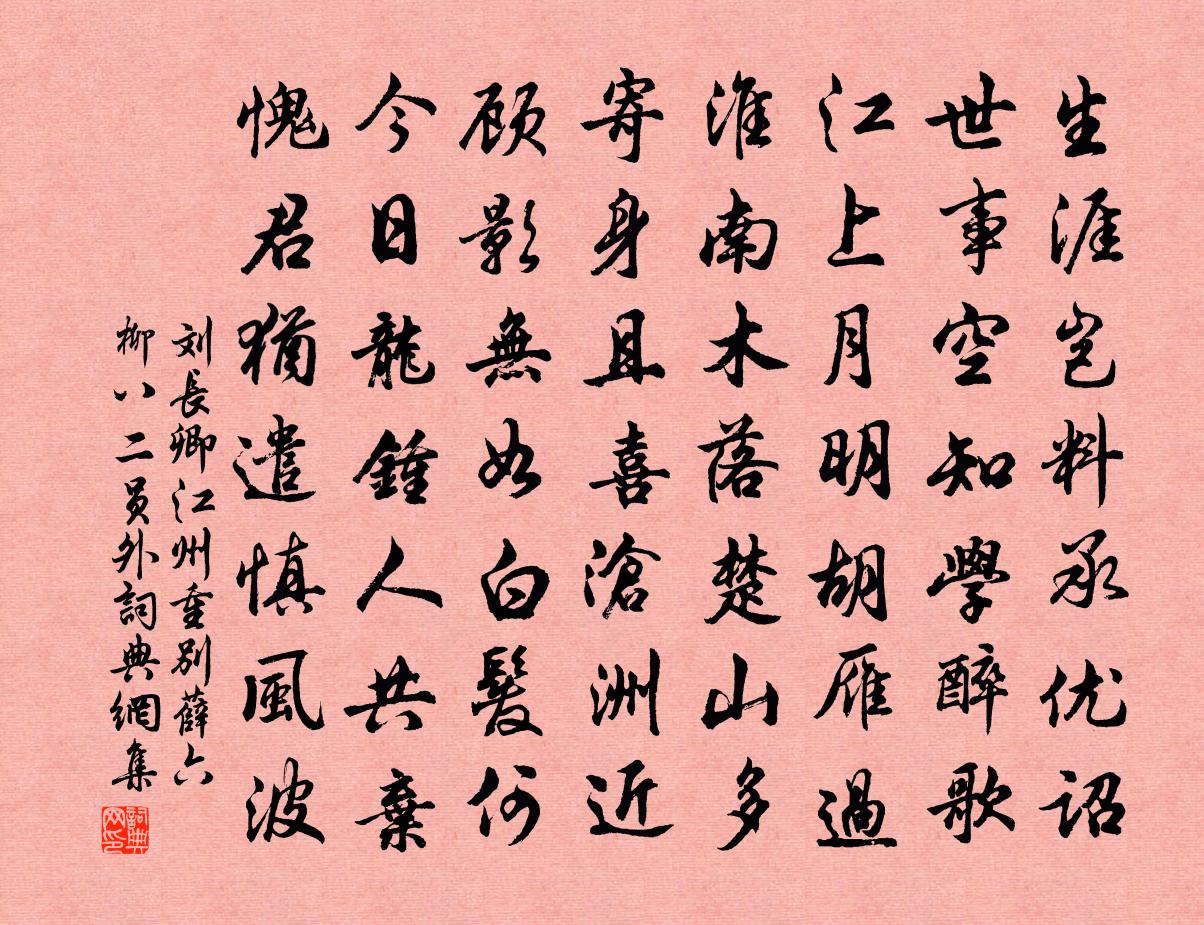 生涯岂料承优诏
世事空知學醉歌
江上月明胡雁過
淮南木落楚山多
寄身且喜滄洲近
顾影無如白髮何
今日龍鍾人共棄
愧君猶遣慎風波
刘長卿江州重别薛六
柳八二员外詞典網集
詞典网印